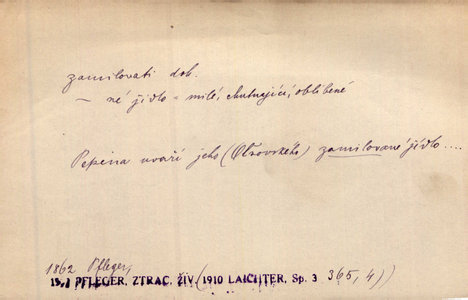 zamilovati dok.
— né jídlo = milé, chutnající, oblíbené
Pepina uvaří jeho (Olšovského) zamilované jídlo....
1862 Pfleger,
PFLEGER, ZTRAC. ŽIV. (1910 LAICHTER, Sp. 3 365, 4))